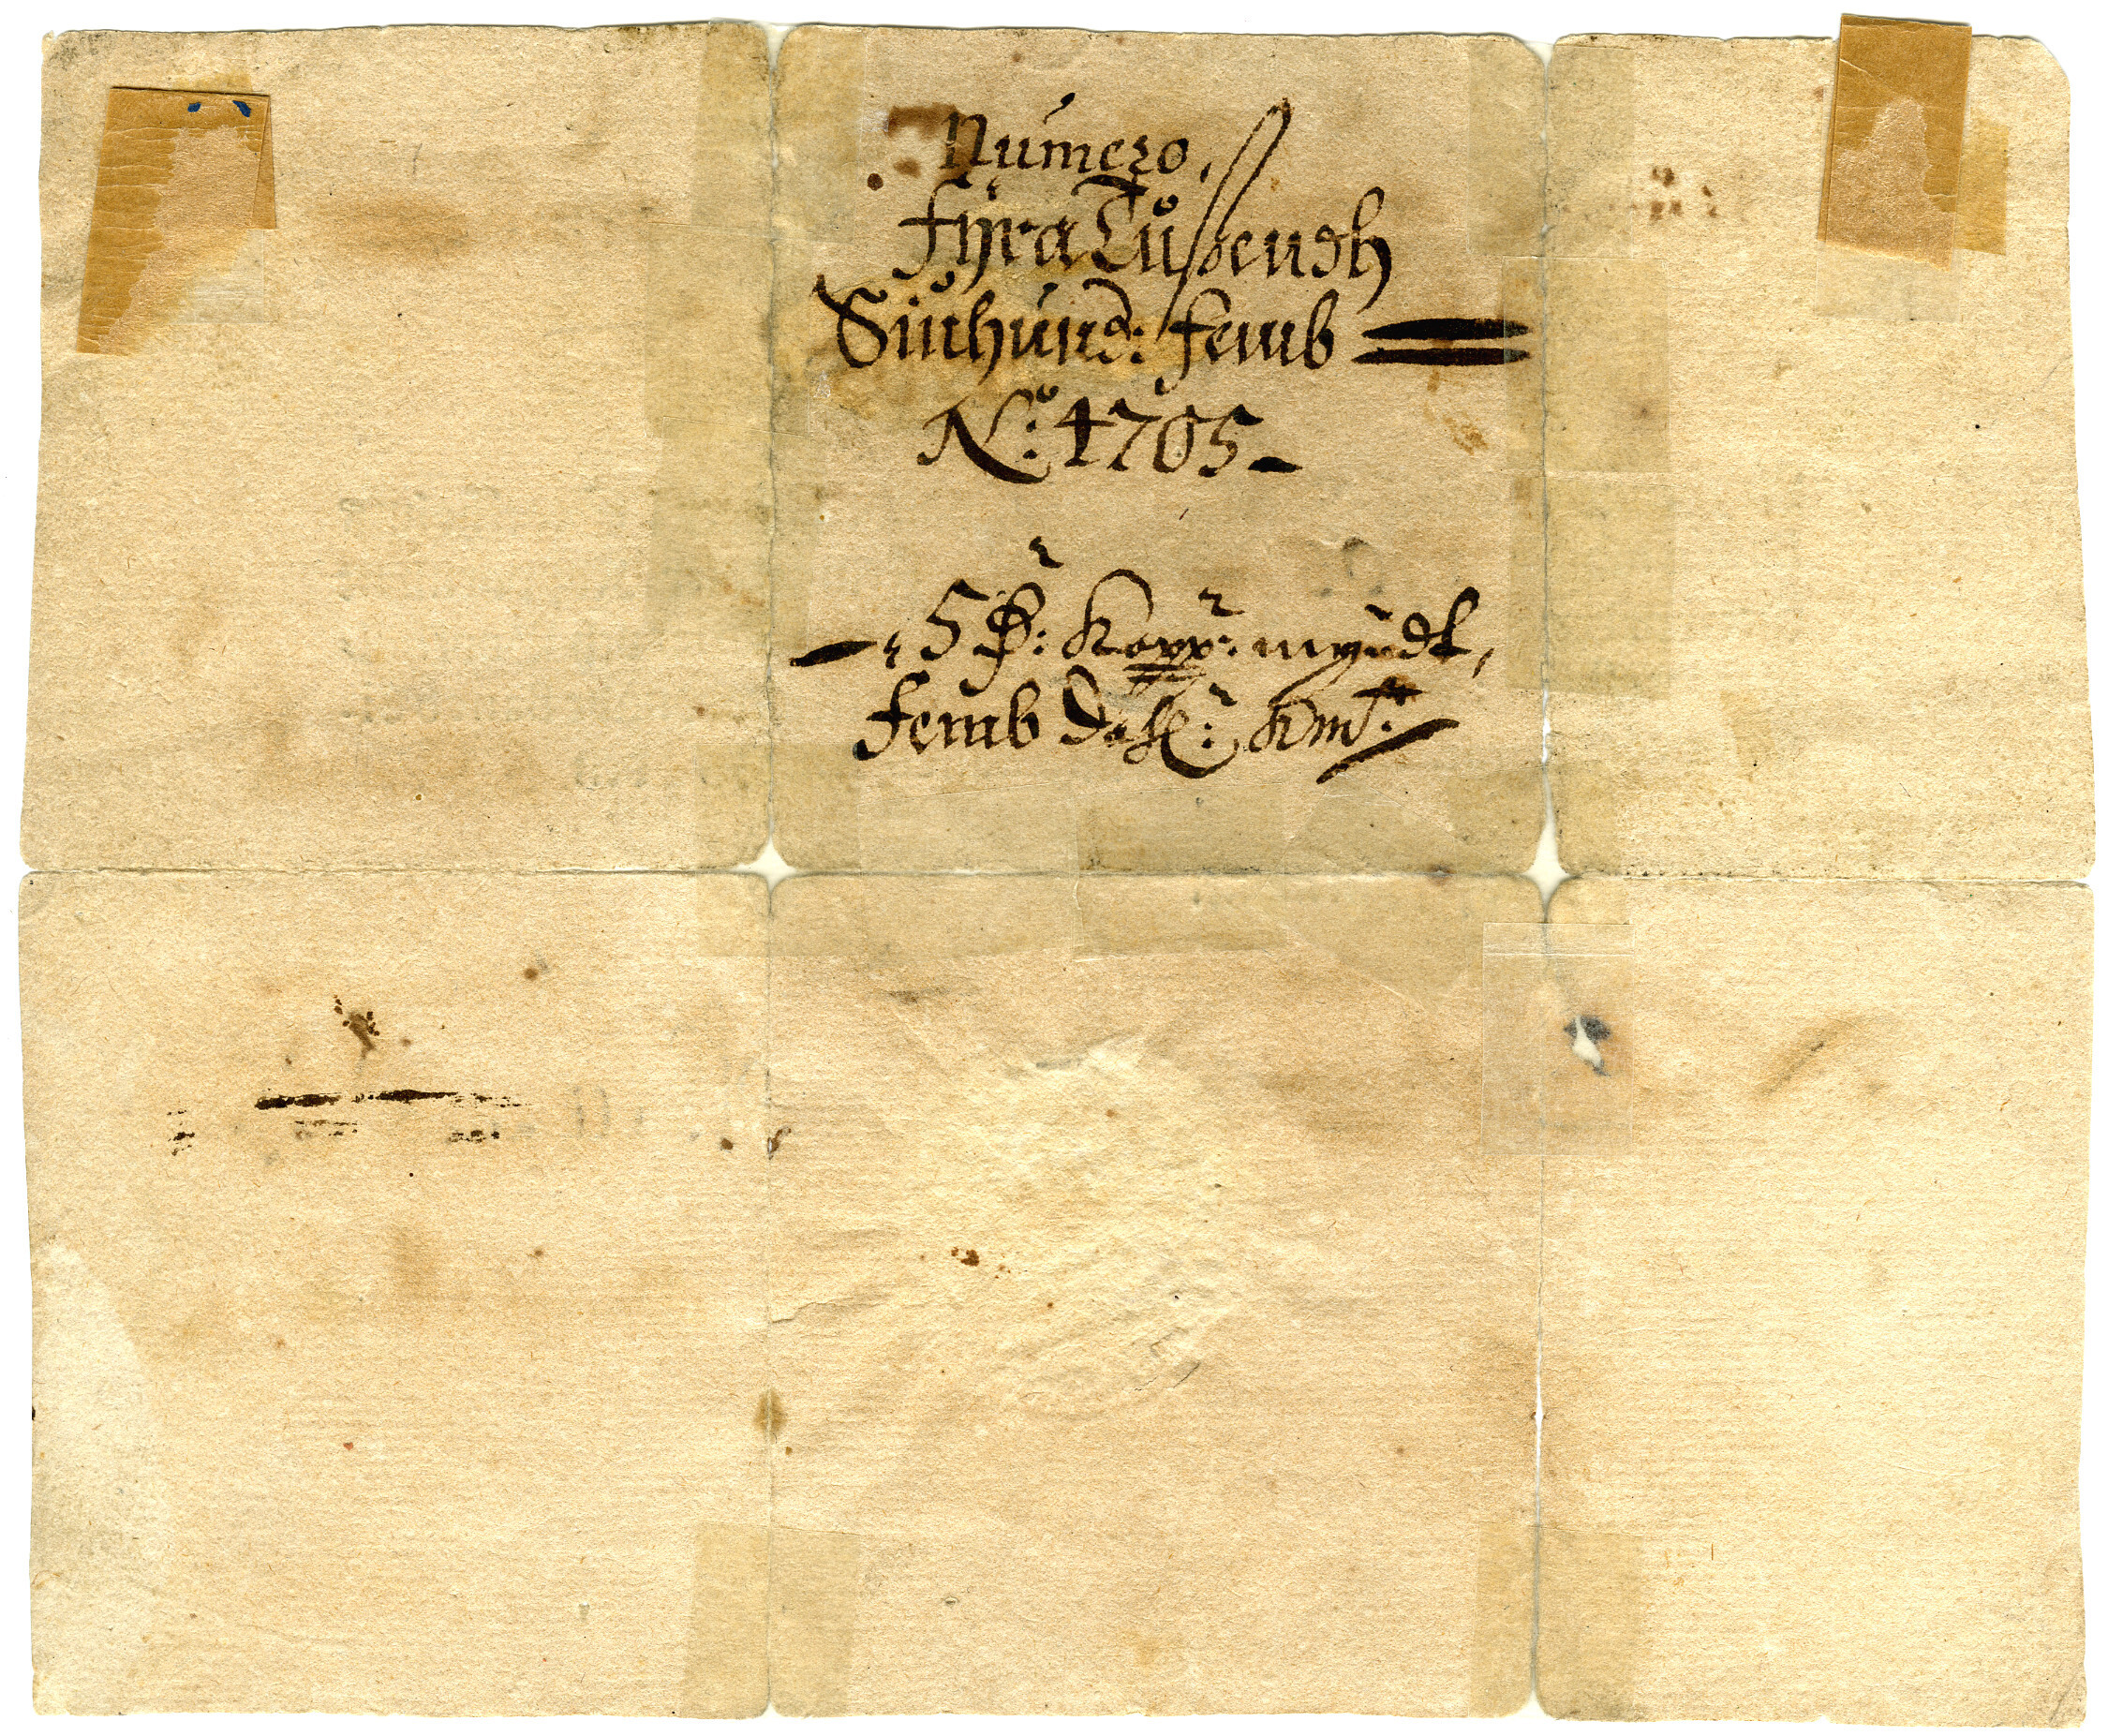 Numero,
fÿra Tůßendh
Siůhund: femb
N.º 4705
5 D.r Kopp.r myndt,
femb dal.r Kmt.